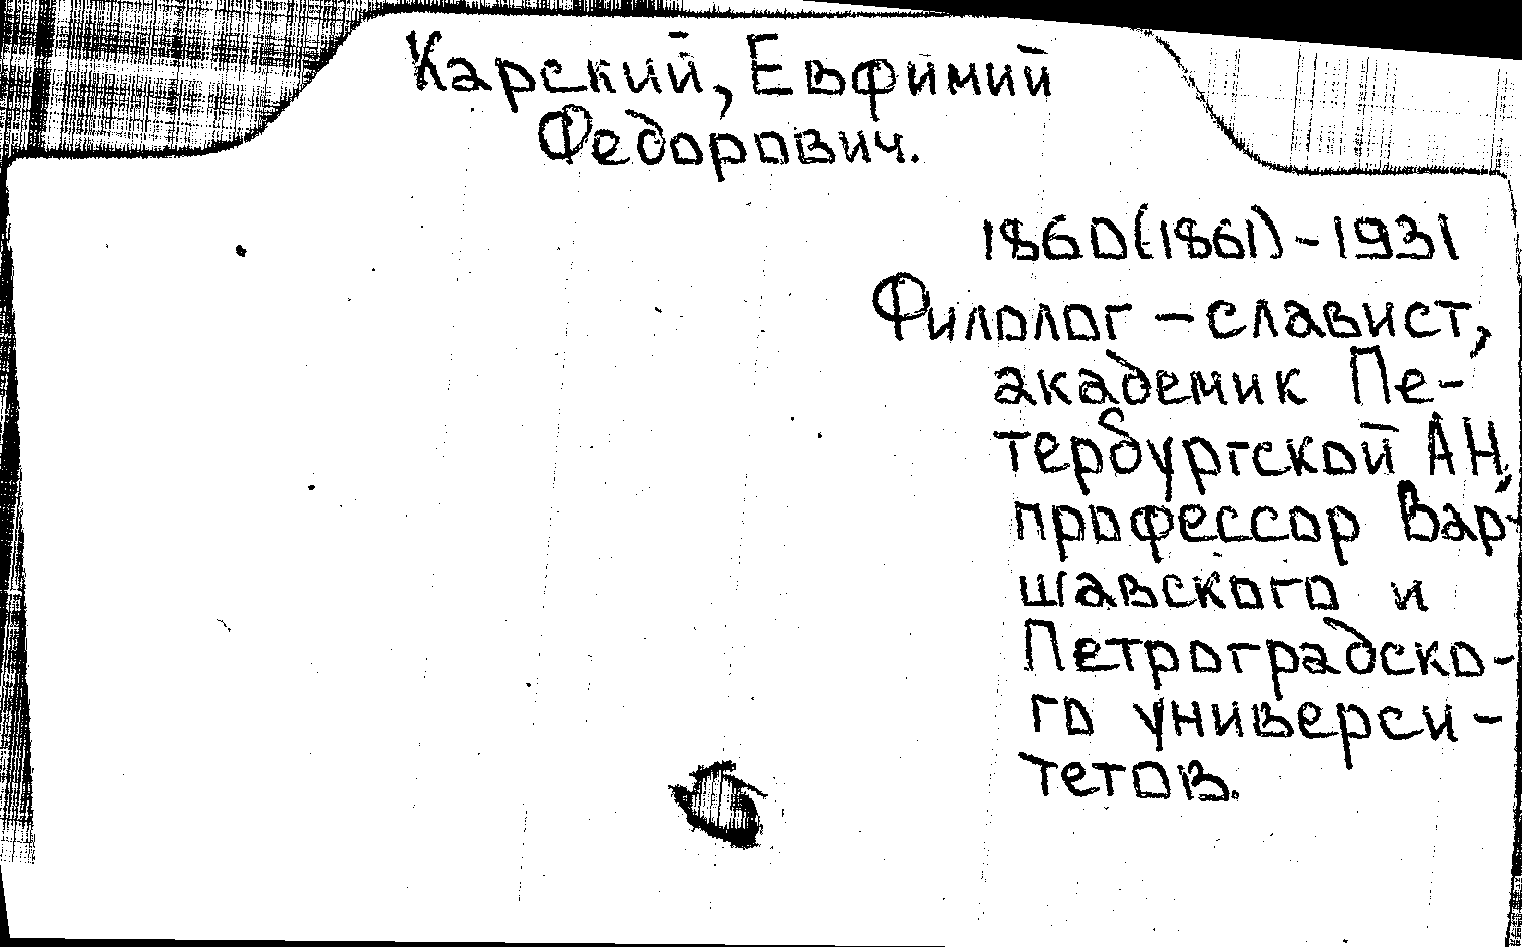 Карский, Евфимий
Федорович.
1860(1861)-1931
Филолог-славист,
академик Пе-
тербургской АН,
профессор Вар-
шавского и
Петроградско-
го универси-
тетов.